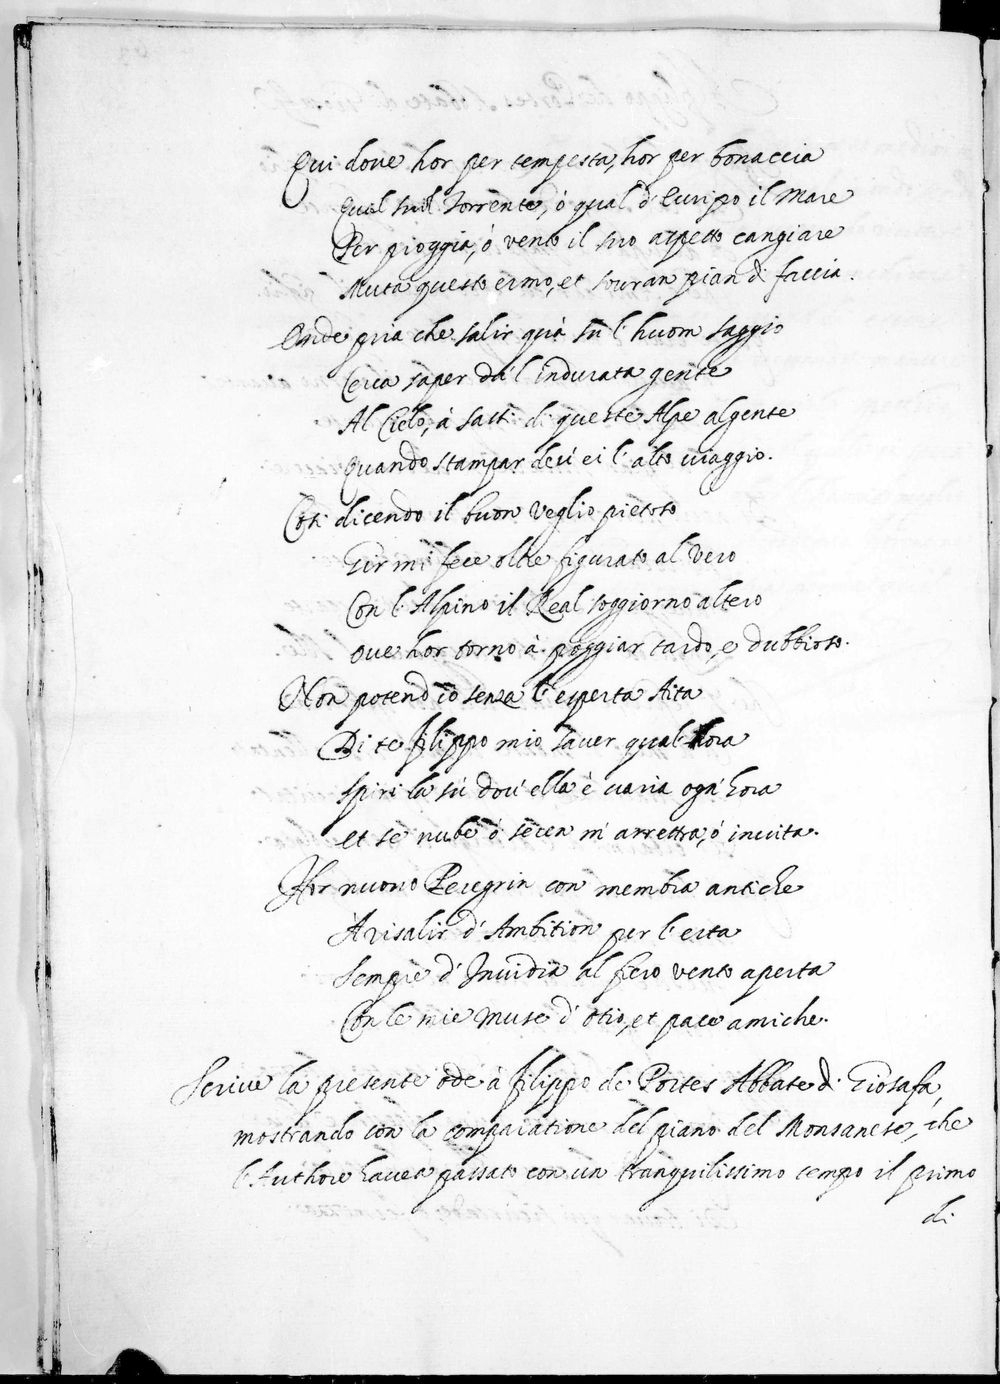 Qui dove hor per tempesta, hor per bonaccia
Qual suol Torrente, ó qual d'Euripo il Mare
Per pioggia, ó vento il suo aspetto cangiare
Muta questo ermo, et souran pian di faccia.
Onde pria che salir quà sù l'huom saggio
Cerca saper da l'indurata gente
Al Cielo, à sassi di queste Alpe algente
Quando stampar devi ei l'alto viaggio.
Cosi dicendo il buon Veglio pietoso
Gir mi fece oltre figurato al Vero
Con l'Alpino il Real soggiorno altero
Ove hor torno à poggiar tardo, e dubbioso.
Non potend'io senza l'esperta Aita
Di te Filippo mio saver qual hora
Spiri la sù dov'ella è varia ogn'hora
Et se nube ó secca m'arretra, ó invita.
Hor nuovo Peregrin con membra antiche
A risalir d'Ambition per l'erta
Sempre d'Invidia al fiero vento aperta
Con le mie Muse d'Otio, et pace amiche.
Scrive la presente ode à Filippo de Portes Abbate di Giosafa,
mostrando con la comparatione del piano del Monsanese, che
l'Authore havea passato con un tranquilissimo tempo il primo
di